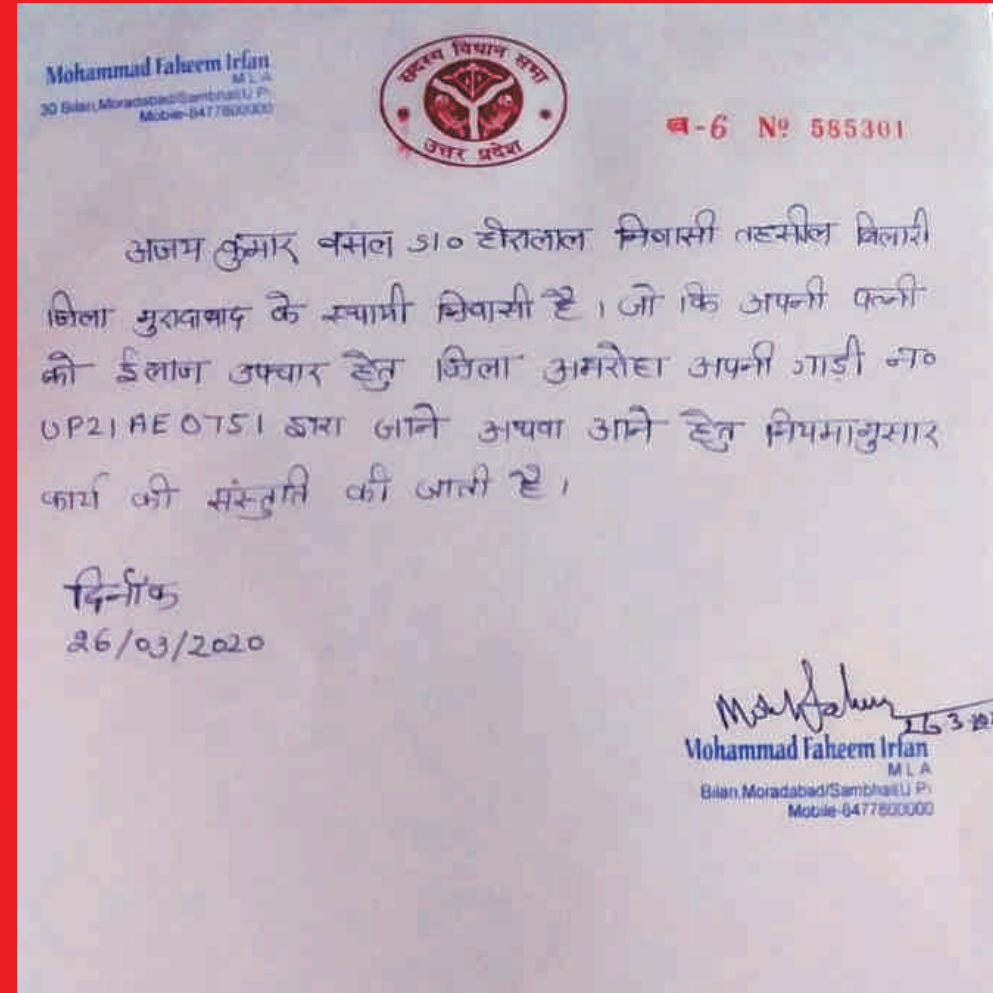 Mohammad Faheem Irfan
M L A
30 Bilari, Moradabad/Sambhal(U P)
Mobile-8477800000
सदस्य विधान सभा
उत्तर प्रदेश
ब-6 Nº 585301
अजय कुमार बंसल S/o हीरालाल निवासी तहसील बिलारी
जिला मुरादाबाद के स्थायी निवासी है। जो कि अपनी पत्नी
को ईलाज उपचार हेतु जिला अमरोहा अपनी गाडी न०
UP21AE0751 द्वारा जाने अथवा आने हेतु नियमानुसार
कार्य की संस्तुति की जाती है।
दिनाँक
26/03/2020
26 3
Mohammad Faheem Irfan
M L A
Bilari, Moradabad/Sambhal(U P)
Mobile-8477800000